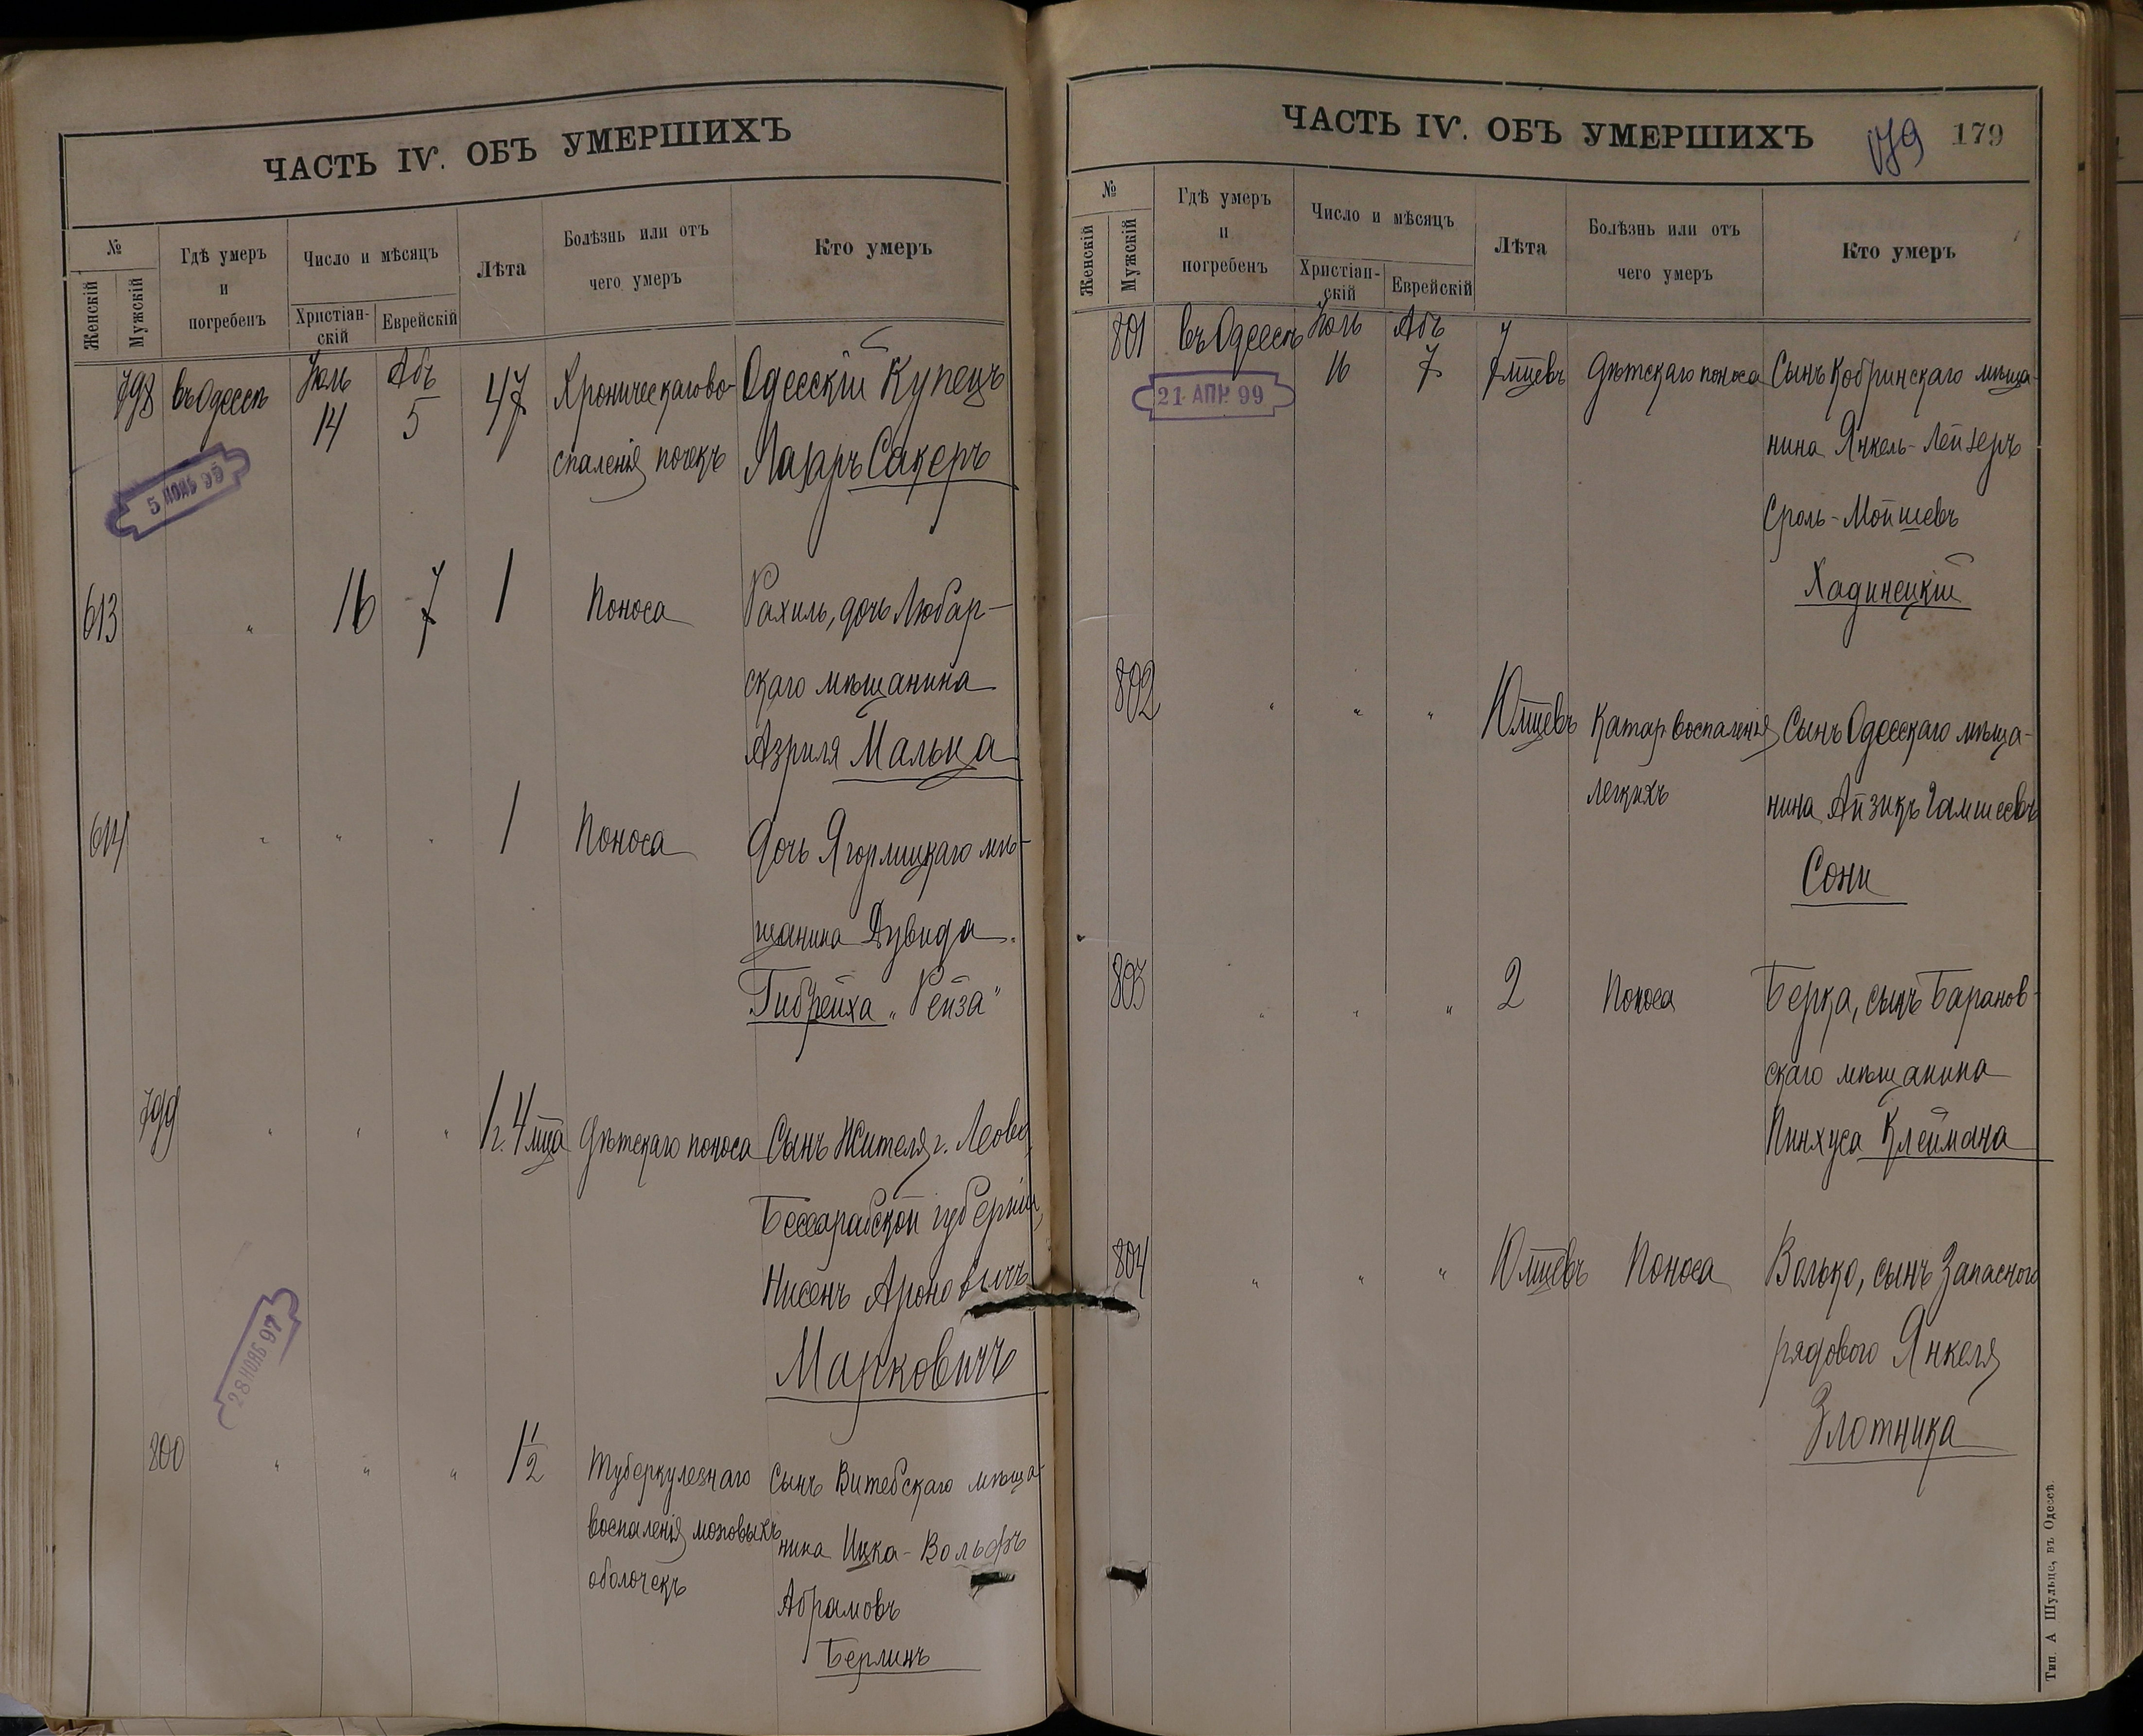 ЧАСТЬ IV. ОБЪ УМЕРШИХЪ
№
Женскій
Мужскій
Гдѣ умеръ
и
погребенъ
Число и мѣсяцъ
Христіан-
скій
Еврейскій
Лѣта
Болѣзнь или отъ
чего умеръ
Кто умеръ
798 въ Одессѣ Іюль 14 Абъ 5 47 Хроническаго во- Одесскій Купецъ
спаленія почекъ Лазарь Сакеръ
5 ИЮНЬ 99
613 " 16 7 1 Поноса Рахиль, дочь Любар-
скаго мѣщанина
Азриля Мальца
614 " " " 1 Поноса Дочь Ягорлицкаго мѣ-
щанина Дувида
Гибрейха "Рейза"
799 " " " 1 г. 4 мца Дѣтскаго поноса Сынъ Жителя г. Леово,
Бессарабской губерніи,
Нисенъ Ароновичъ
Марковичъ
28 НОЯБ 97
800 " " " 1 1/2 Туберкулезнаго Сынъ Витебскаго мѣща-
воспаленія мозговыхъ нина Ицка-Вольфъ
оболочекъ Абрамовъ
Берлинъ
ЧАСТЬ IV. ОБЪ УМЕРШИХЪ 179 179
№
Женскій
Мужскій
Гдѣ умеръ
и
погребенъ
Число и мѣсяцъ
Христіан-
скій
Еврейскій
Лѣта
Болѣзнь или отъ
чего умеръ
Кто умеръ
801 въ Одессѣ Іюль 16 Абъ 7 7 мцевъ Дѣтскаго поноса Сынъ Кобринскаго мѣща-
21 АПР. 99
нина Янкель-Лейзеръ
Сроль-Мойшевъ
Хадинецкій
802 " " " 10 мцевъ Катар. воспаленія Сынъ Одесскаго мѣща-
легкихъ нина Айзикъ Гамшеевъ
Сони
803 " " " 2 Поноса Берка, сынъ Баранов-
скаго мѣщанина
Пинхуса Клеймана
804 " " " 10 мцевъ Поноса Волько, сынъ Запаснаго
рядового Янкеля
Злотника
Тип. А Шульце, въ Одессѣ.